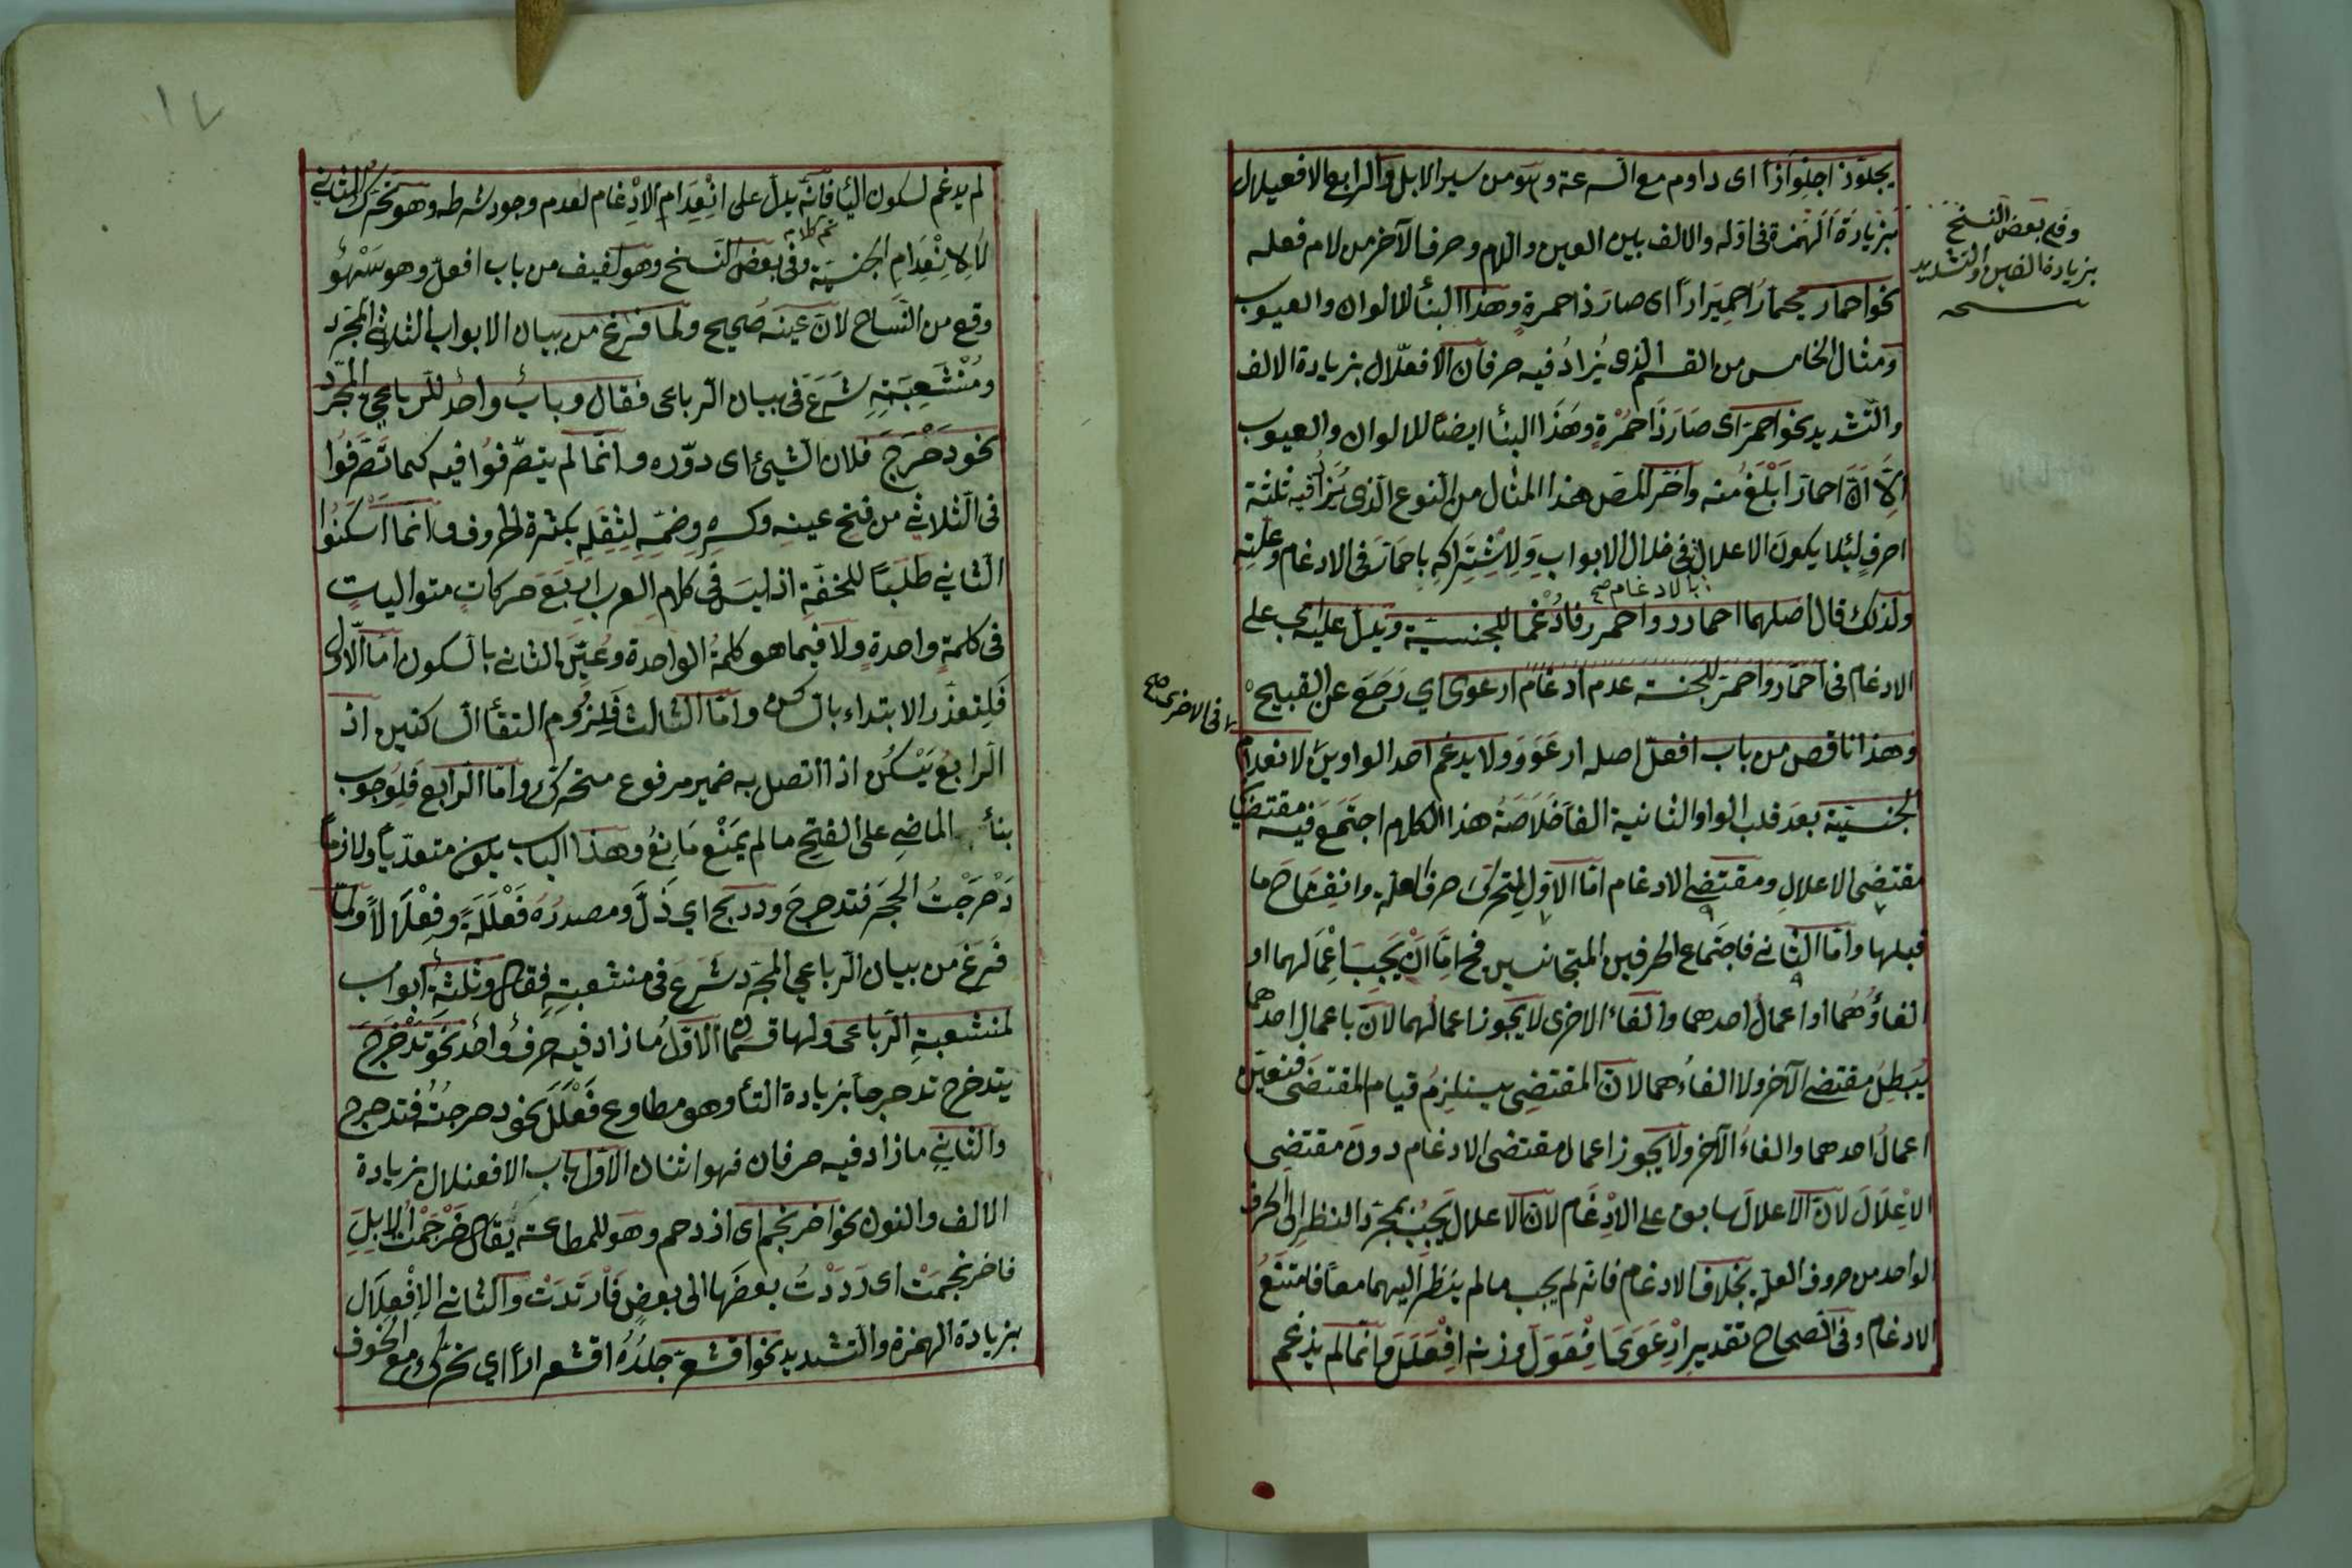 يجلوّذ اجلِوّاذًا اى داوم مع السرعة وهو من سير الابل والرابع الافعيلال
بزيادة الهمزة فى اوّله والالف بين العين واللام وحرف الآخر من لام فعله
نحو احمارّ يحمارُّ احمِيرارًا اى صار ذا حمرةٍ وهذا البنأ للالوان والعيوب
ومثال الخامس من القسم الذى يُزادُ فيه حرفان الافعلّال بزيادة الالف
والتّشديد نحو احمرّ اى صَارَ ذَا حُمْرةٍ وهَذَا البنأ ايضًا للالوان والعيوب
اِلّا اَنّ احمارّ اَبْلَغُ منه واخّر المصّ هذا المثال من النوع الّذى يُزَادُ فيه ثلثة
احرفٍ لِئلا يكونَ الاعلال فى خلال الابوابِ وَلِاشْتِرَاكِهِ بِاحمَارّ فى الادغام وعلّتِهِ
ولذلك قال اصلهما احمارر واحمرر فاُدْغما للجنسيّة ويدلّ عليه اى على
بالادغام صح
الادغام فى احمَارّ واحمَرّ للجنسيّة عدم ادغام ارعوى اي رَجَعَ عن القبيح
وهذا ناقص من باب افعلّ اصله ارعَوَوَ ولا يدغم احد الواوين لانعدام
الجنسيّة بعدَ قلب الواو الثانية الفاً خلَاصَةُ هذا الكلام اجتَمَعَ فيه مقتضيا
مقتضى الاعلالِ ومقتضى الادغام امّا الاوّل لتحرّك حرف العلّة وانفِتاح ما
قبلها وامّا الثانى فاجتماع الحرفين المتجانسين فح امّا اَنْ يَجِبَ اِعْمَالهما او
الغاؤُهُما او اعمالُ احدهما والغاء الاخرى لا يجوز اعمالُهما لانّ باعمالِ احدهما
يُبطِلُ مقتضى الآخر ولا الغاءُهما لانّ المقتضِى يستلزِمُ قيام المقتضَى فتعيّن
اعمالُ احدهما والغاءُ الآخر ولا يجوز اعمال مقتضى الادغام دونَ مقتضِى
الاِعْلَالَ لانّ الاعلالَ سابق على الاِدْغَام لانّ الاعلال يَجِبُ بمجرّد النظرِ الى الحرف
الواحد من حروف العلّة بخلاف الادغام فانّه لم يجب مالم ينظَر اليهما معاً فامتنَعُ
الادغام وفى الصحاح تقديرِ اِرْعَوَى اِفْعَوَلَ وزنه اِفْعَلَلَ وانّما لم يدغم
وفى بعض النسخ
بزيادة الالف والتشديد
نسخه
فى الاخرى صح
١٧
لم يدغم لسكون اليأ فانّه يدلّ على انْعِدَام الاِدْغام لعدم وجود شرطه وهو تحرّك الثانى
لَا لِانْعِدَامِ الجنسيّة وفى بعض النّسخ وهو لفيف من باب افعلّ وهو سَهْوٌ
تم كلامه
وقع من النّسّاح لانّ عينه صَحيح ولما فرغ من بيان الابواب الثلاثى المجرّد
ومُنْشَعِبَتِهِ شَرَعَ فى بيان الرباعى فقال وبابٌ واحدٌ للرباعيّ المجرّد
نحو دَحْرَجَ فلان الشيئ اى دوّره وانّما لم يتصرّفُوا فيه كما تَصَرّفُوا
فى الثلاثي من فتح عينِه وكسرِه وضمّه لِثِقَلِهِ بكثرة الحروف وانّما اسْكَنُوا
الثاني طلبًا للخفّةِ اذ ليسَ فى كلامِ العرب اربَعَ حركاتٍ متوالياتٍ
فى كلمةٍ واحدةٍ ولا فيما هو كلمةُ الواحدة وعُيّنَ الثانى بالسكون امّا الاوّل
فَلِتعذّر الابتداء بالساكن وامّا الثالث فَلِلزُومِ التقأ الساكنين اذ
الرابعُ يَسْكُنُ اذا اتصل به ضمير مرفوع متحرّك وامّا الرابع فَلِوُجوب
بنأ الماضى على الفتح ما لم يَمْنَعْ مَانِعُ وهذا الباب يكون متعدّياً ولازماً
دَحْرَجْتُ الحجر فتدحرجَ ودربح اي ذَلَّ ومصدرُهُ فَعْلَلَةً وفِعْلَالاً ولمّا
فَرَغَ من بيان الرباعي المجرّد شَرَعَ فى منشعبتِهِ فقال وثلثةُ ابواب
لمنشعبةِ الرباعى ولها قسمان الاوّلُ ما زاد فيه حرفٌ واحدٌ نحو تَدَحْرَجَ
يتدحرج تدحرجاً بزيادة التأ وهو مطاوع فَعْلَلَ نحو دحرجتُهُ فتدحرج
والثانى ما زاد فيه حرفان فهو اثنان الاوّل باب الافعنلال بزيادة
الالف والنون نحو احرنجم اى ازدحم وهو للمطاوعة يُقال حَرْجَمْتُ الابِلَ
فاحرنجمَتْ اى رَدَدْتُ بعضَها الى بعضٍ فَارْتَدَدَتْ والثانى الاِفْعِلَال
بزيادة الهمزة والتشديد نحو اقشعرّ جلدُهُ اقشعرارًا اي تحرّك مع الخوف